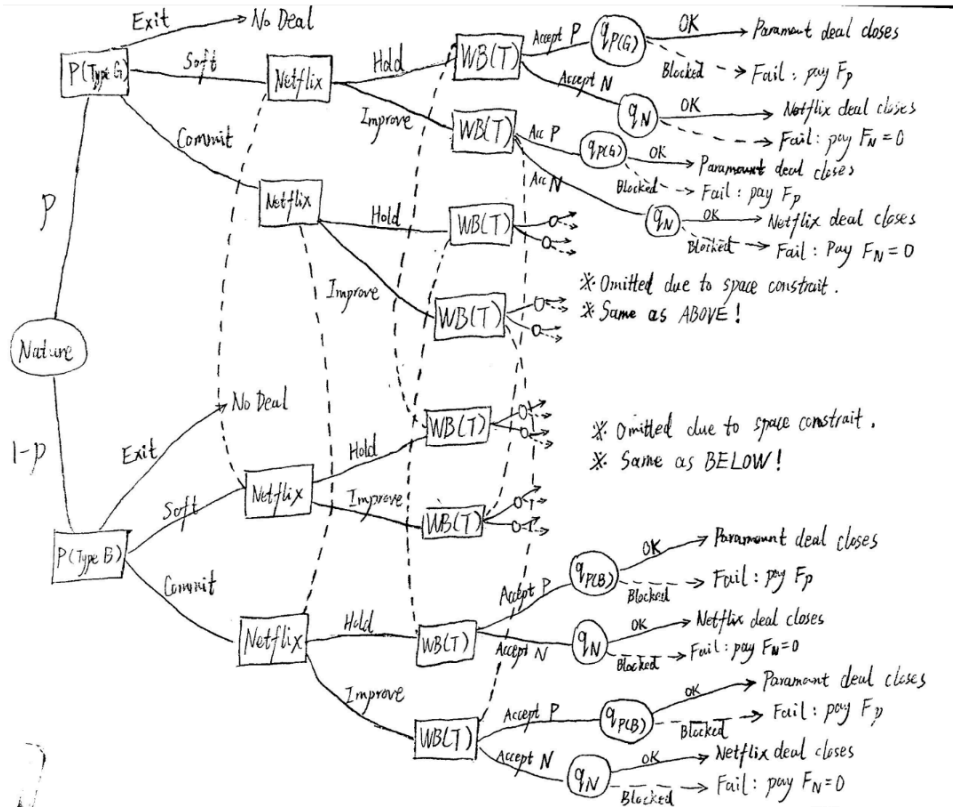 Exit
No Deal
P(Type G)
Soft
Netflix
Hold
WB(T)
Accept P
q_P(G)
OK
Paramount deal closes
Blocked
Fail: pay F_P
Accept N
q_N
OK
Netflix deal closes
Fail: pay F_N=0
Improve
WB(T)
Acc P
q_P(G)
OK
Paramount deal closes
Blocked
Fail: pay F_P
Acc N
q_N
OK
Netflix deal closes
Blocked
Fail: Pay F_N=0
Commit
Netflix
Hold
WB(T)
Improve
WB(T)
※ Omitted due to space constrait.
※ Same as ABOVE!
P
Nature
1-p
No Deal
Exit
P(Type B)
Soft
Netflix
Hold
WB(T)
Improve
WB(T)
※ Omitted due to space constrait.
※ Same as BELOW!
Commit
Netflix
Hold
WB(T)
Accept P
q_P(B)
OK
Paramount deal closes
Blocked
Fail: pay F_P
Accept N
q_N
OK
Netflix deal closes
Blocked
Fail: pay F_N=0
Improve
WB(T)
Accept P
q_P(B)
OK
Paramount deal closes
Blocked
Fail: pay F_P
Accept N
q_N
OK
Netflix deal closes
Blocked
Fail: pay F_N=0